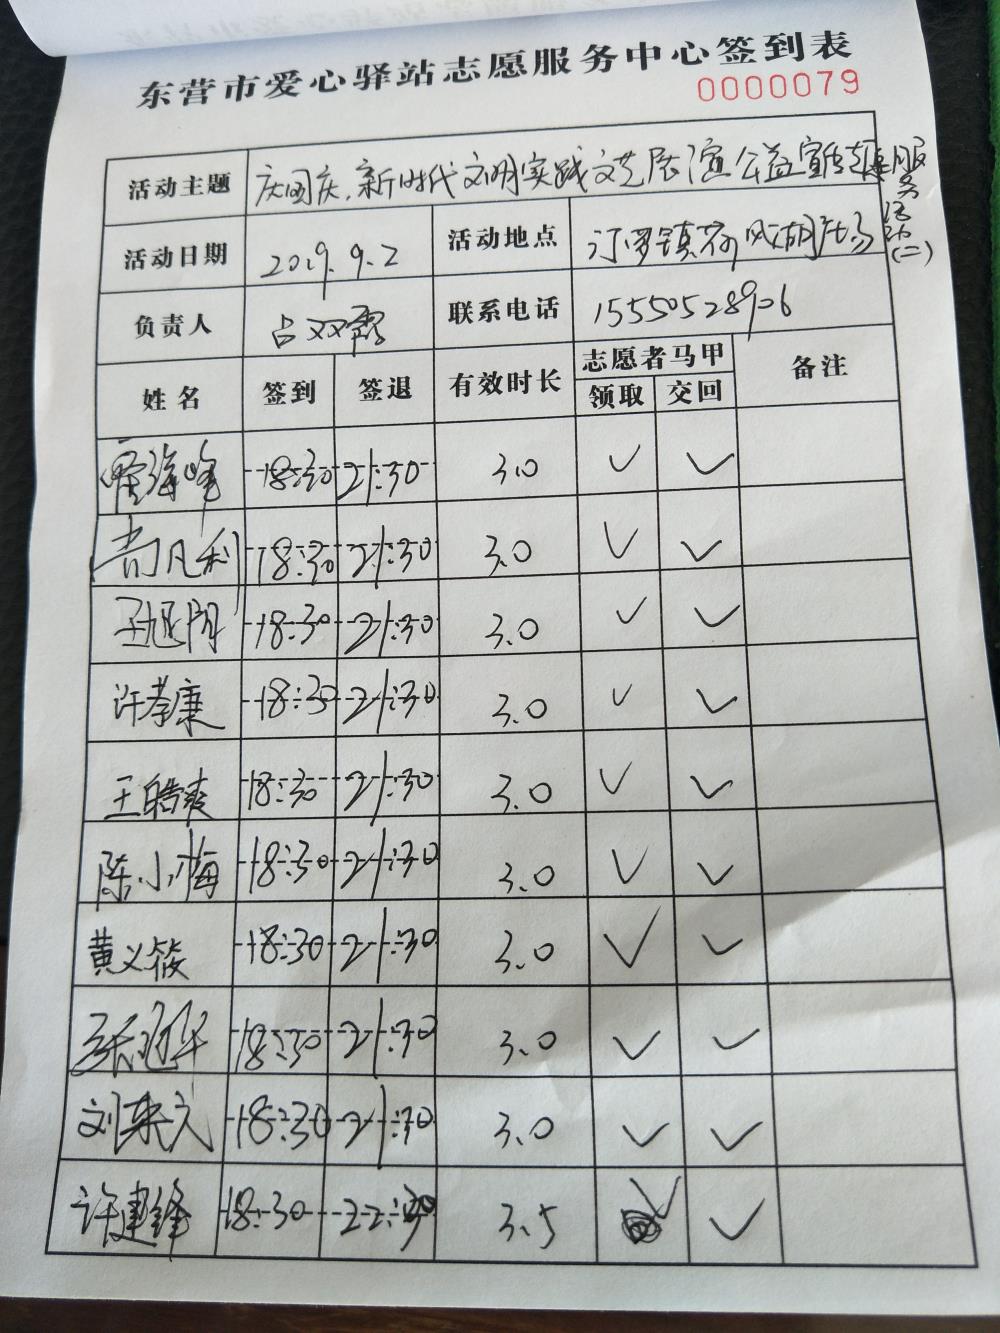 东营市爱心驿站志愿服务中心签到表
0000079
活动主题 庆国庆.新时代文明实践文艺展演公益宣传志愿服务活动(二)
活动日期 2019.9.2 活动地点 汀罗镇荷风湖广场
负责人 占双霞 联系电话 15550528906
姓名 签到 签退 有效时长 志愿者马甲 备注
领取 交回
18:30 21:30 3.0 ✓ ✓
尚凡利 18:30 21:30 3.0 ✓ ✓
18:30 21:30 3.0 ✓ ✓
许孝廉 18:30 21:30 3.0 ✓ ✓
王皓爽 18:30 21:30 3.0 ✓ ✓
陈小梅 18:30 21:30 3.0 ✓ ✓
黄义筱 18:30 21:30 3.0 ✓ ✓
18:30 21:30 3.0 ✓ ✓
刘来文 18:30 21:30 3.0 ✓ ✓
许建锋 18:30 3.5 ✓ ✓